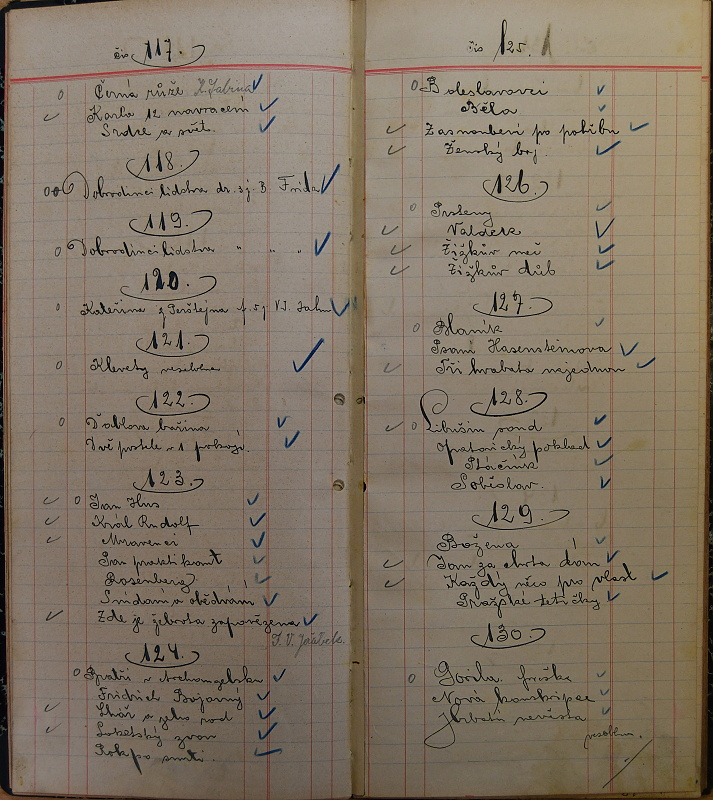 čís 117.
Černá růže K. Sabina
Karla 12 navracení
Srdce a svět.
118.
Dobrodinci lidstva dr. 3 j. B Frida
119.
Dobrodinci lidstva " " "
120.
Kateřina z Perštejna f. 5 j V. J. Jahn
121.
Klevety
122.
Ďáblova bařina
Dvě postele v 1 pokoji.
123.
Ivan Hus
Král Rudolf
Mravenci
Pan praktikant
Rosenberg
Snídaní a obědvám
Zde je žebrota zapovězena
124.
F. V. Jeřábek.
v Archangelsku
Fridrich Bojovný
Lhář a jeho rod
Loketský zvon
Rok po smrti.
čís 125.
Boleslavovci
Běla
Zasnoubení po pohřbu
Ženský boj.
126.
Prsteny
Valdek
Žižkův meč
Žižkův dub
127.
Blaník
Psaní Hasensteinova
Tři hrabata najednou
128.
Libušin soud
Opatovický poklad
Ptáčník
Soběslav.
129.
Božena
Jan za chrta dán
Každý něco pro vlast
Pražské tetičky
130.
Gorila fraška
Nová konskripce
Hrbatá nevěsta
veselohra.